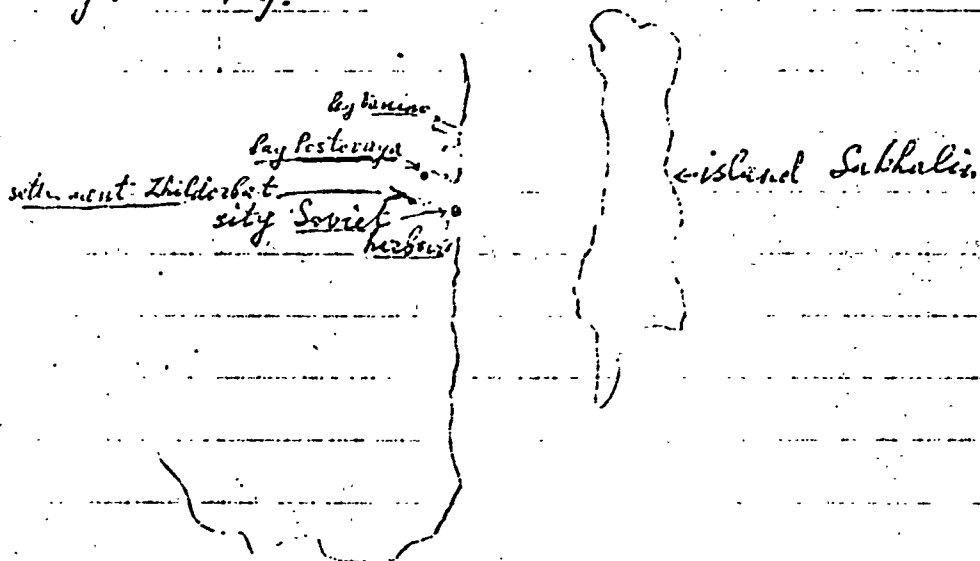 bay Vanino
bay Postovaya
settlement Zhilderbat
sity Soviet
harbour
←island Sakhalin